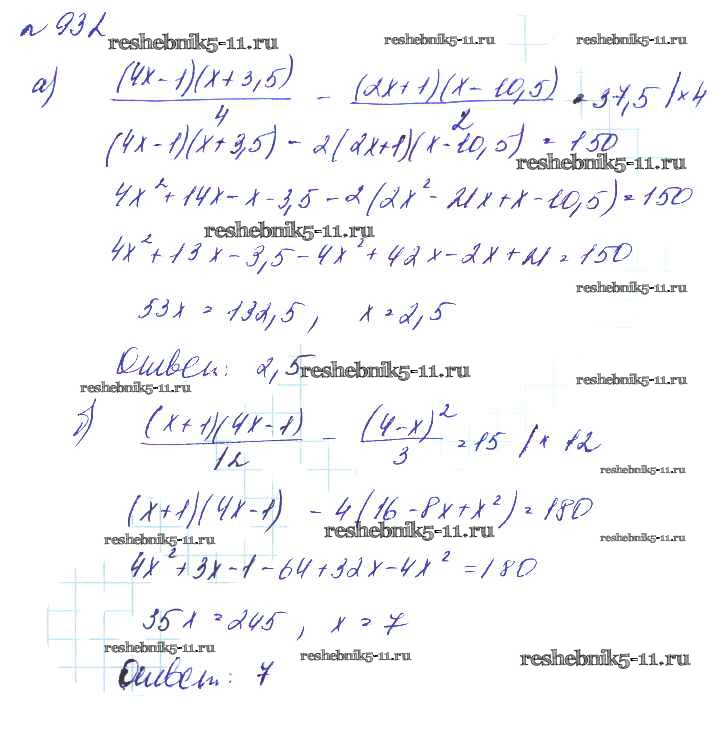 № 932
reshebnik5-11.ru reshebnik5-11.ru reshebnik5-11.ru
а) (4x-1)(x+3,5)/4 - (2x+1)(x-10,5)/2 = 37,5 /×4
(4x-1)(x+3,5) - 2(2x+1)(x-10,5) = 150
reshebnik5-11.ru
4x² + 14x - x - 3,5 - 2(2x² - 21x + x - 10,5) = 150
reshebnik5-11.ru
4x² + 13x - 3,5 - 4x² + 42x - 2x + 21 = 150
reshebnik5-11.ru
53x = 132,5, x = 2,5
reshebnik5-11.ru
Ответ: 2,5
reshebnik5-11.ru reshebnik5-11.ru
reshebnik5-11.ru
б) (x+1)(4x-1)/12 - (4-x)²/3 = 15 /×12
reshebnik5-11.ru
(x+1)(4x-1) - 4(16-8x+x²) = 180
reshebnik5-11.ru reshebnik5-11.ru reshebnik5-11.ru
4x² + 3x - 1 - 64 + 32x - 4x² = 180
35x = 245, x = 7
reshebnik5-11.ru
reshebnik5-11.ru reshebnik5-11.ru reshebnik5-11.ru
Ответ: 7